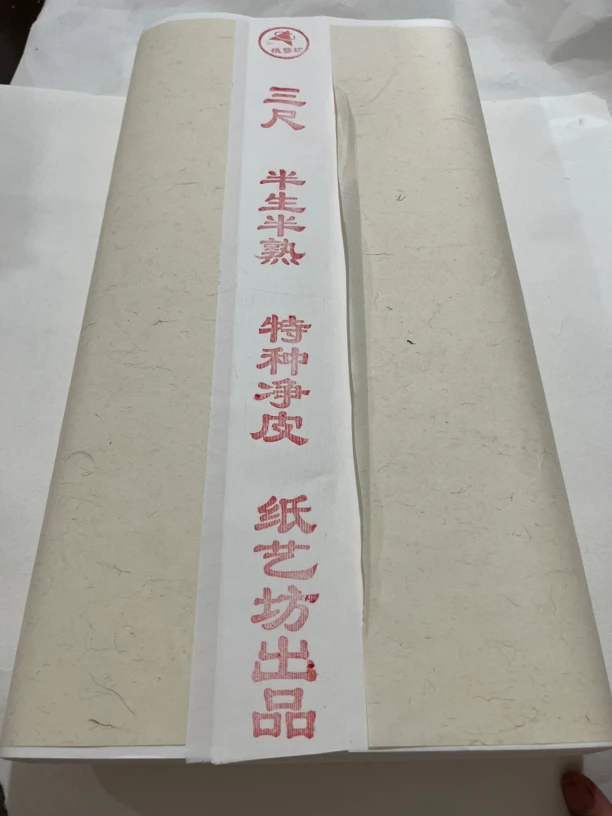 纸艺坊
三尺
半生半熟
特种净皮
纸艺坊出品